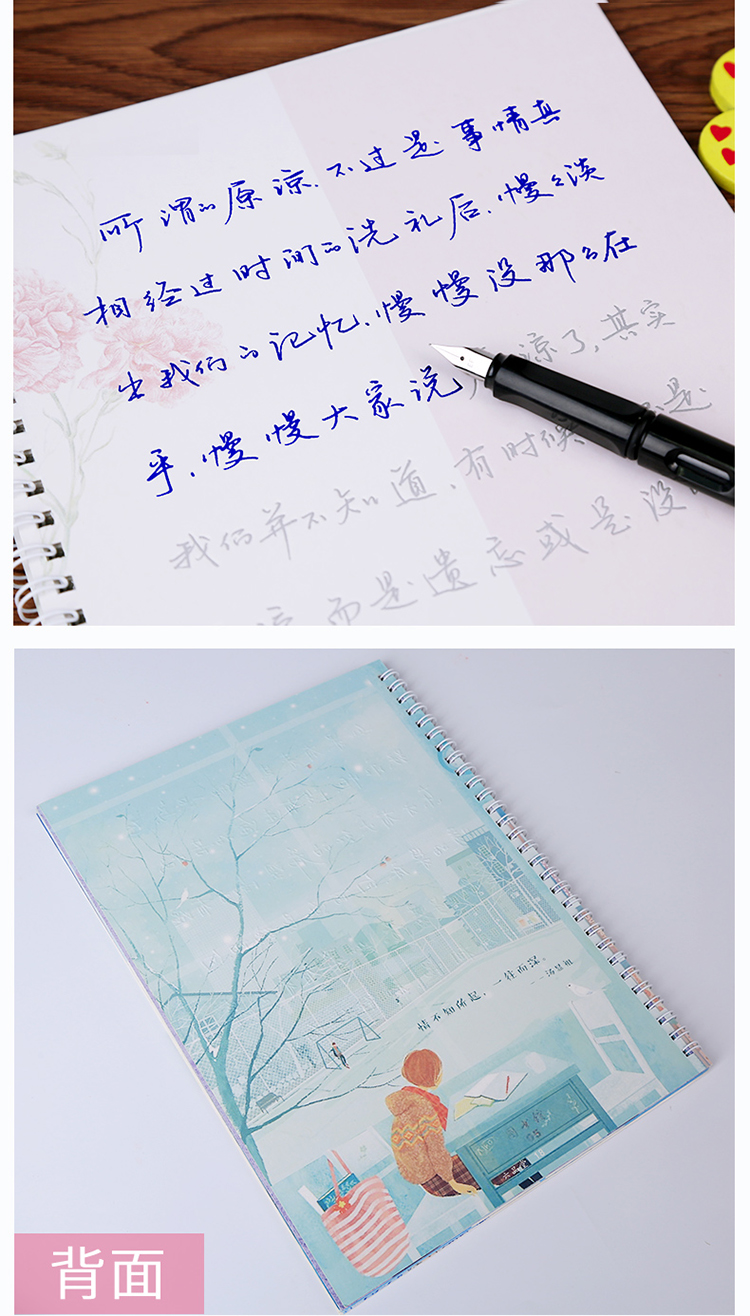 所谓的原谅,不过是事情真
相经过时间的洗礼后,慢々淡
出我们的记忆,慢慢没那么在
乎,慢慢大家说原谅了,其实
我们并不知道,有时候不是
谅而是遗忘或是没
情不知所起,一往而深。
——汤显祖
背面